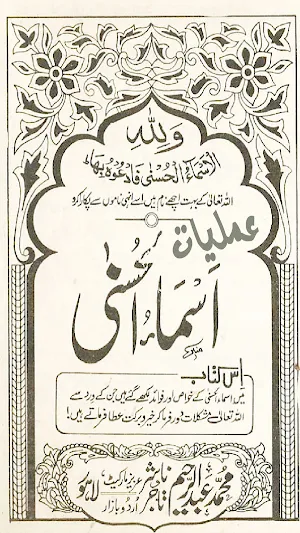 وَلِلّٰهِ
الْاَسْمَآءُ الْحُسْنٰى فَادْعُوْهُ بِهَا
اللہ تعالیٰ کے بہت اچھے نام ہیں اسے انہی ناموں سے پکارا کرو
عملیات
اَسْمَاءُ الْحُسْنٰی
اِس کتاب
میں اسماء الحسنٰی کے خواص اور فوائد لکھے گئے ہیں جن کے ورد سے
اللہ تعالیٰ مشکلات دور فرما کر خیر و برکت عطا فرماتے ہیں!
محمد عبد الرحیم ناشر تاجر عزیز مارکیٹ، اُردو بازار لاہور